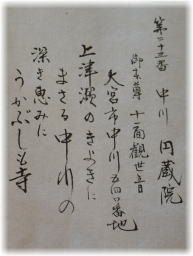 第二十三番 中川 円蔵院
御本尊 十一面観世音
大宮市中川五四番地
上津瀬のきよきに
まさる中川の
深き恵みに
うかぶしも寺